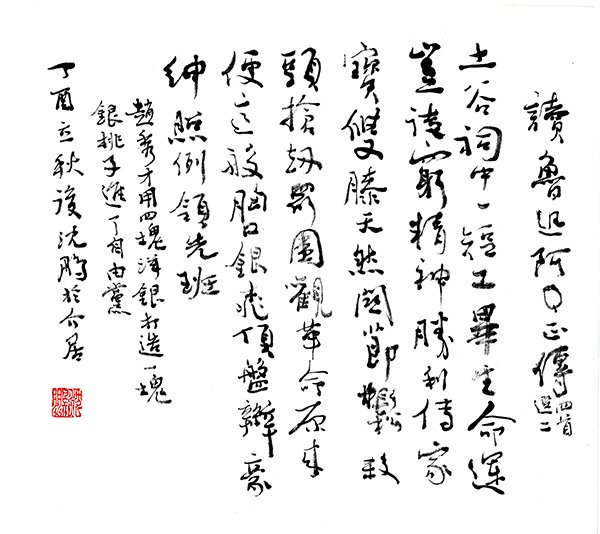 讀魯迅阿Q正傳 四首選二
土谷祠中一短工畢生命運
豈諉窮精神勝利傳家
寶雙膝天然關節鬆 殺
頭搶劫圍觀革命原來
便這般胸口銀桃頂盤辮豪
紳照例領先班
趙秀才用四塊洋銀打造一塊
銀桃子進了自由黨
丁酉立秋後沈鵬於介居